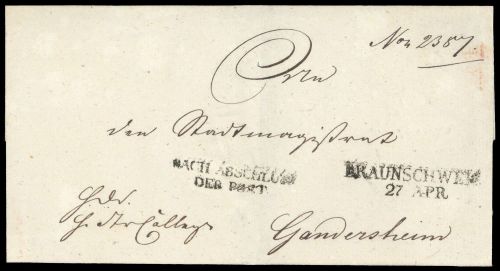 Nro 2387
den Stadtmagistrat
NACH ABSCHLUSS
DER POST
BRAUNSCHWEIG
27 APR.
Gandersheim